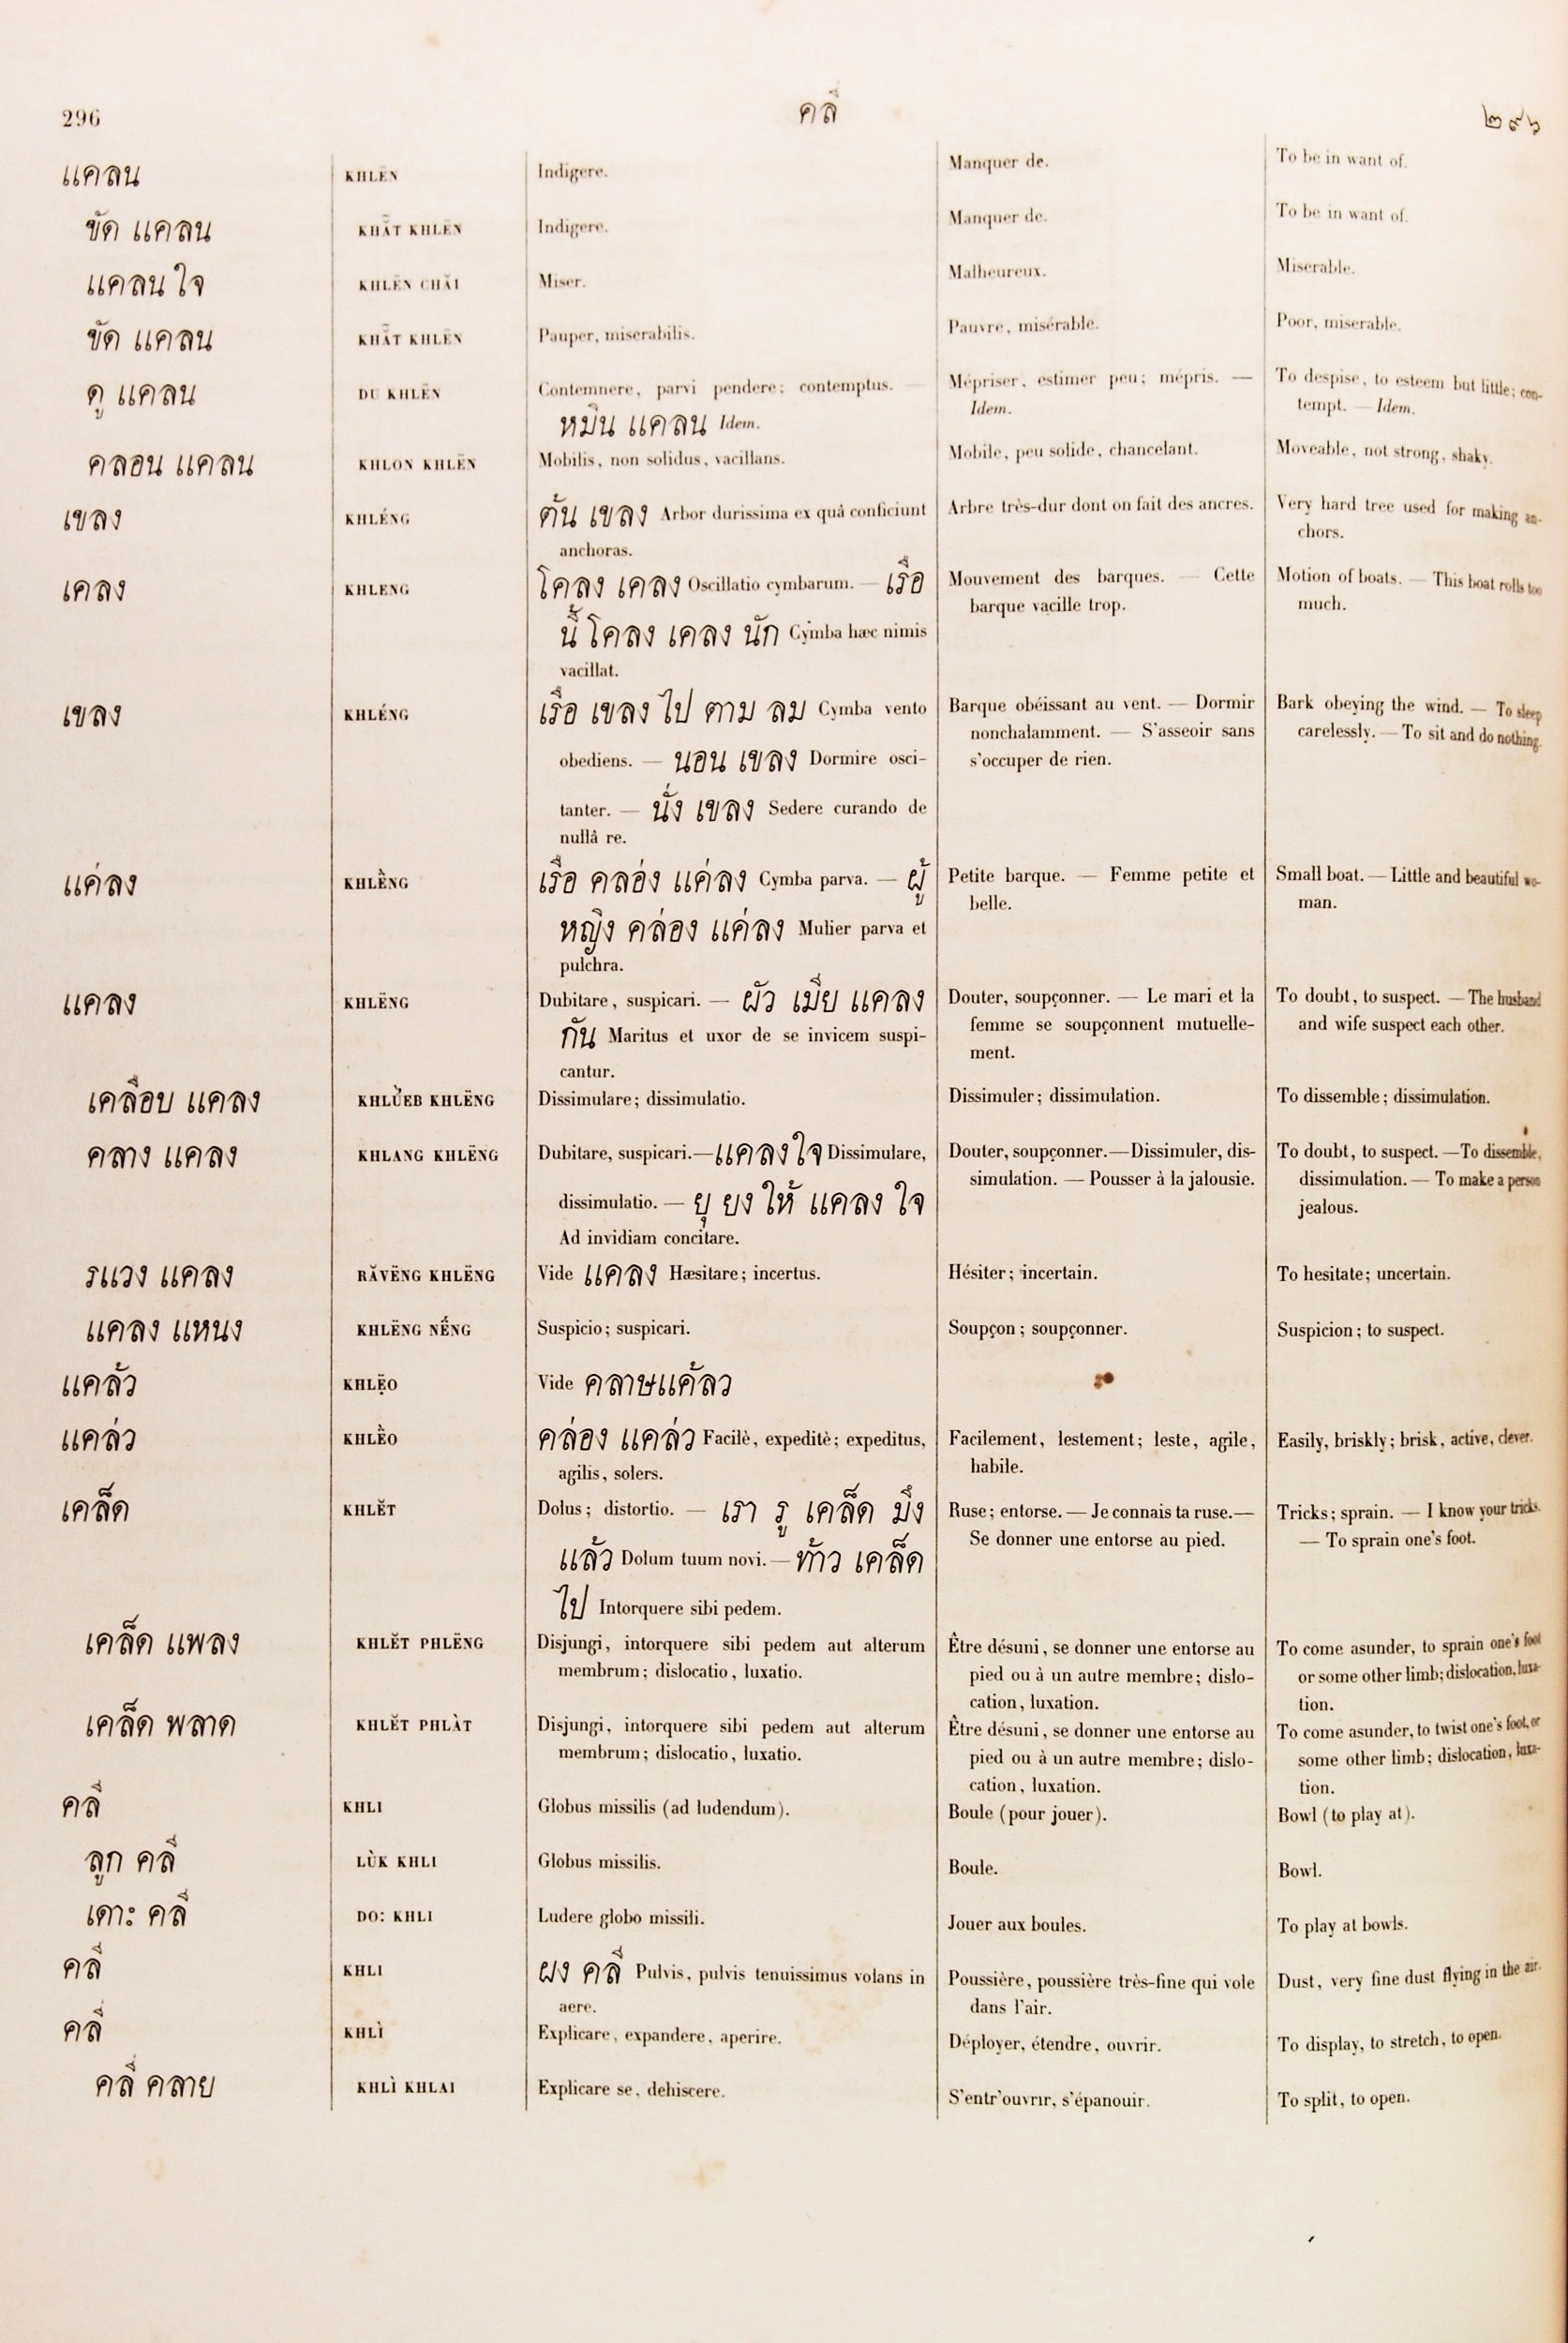 296 คลี ๒๙๖
แคลน KHLËN Indigere. Manquer de. To be in want of.
ขัด แคลน KHẮT KHLËN Indigere. Manquer de. To be in want of.
แคลน ใจ KHLËN CHĂI Miser. Malheureux. Miserable.
ขัด แคลน KHẮT KHLËN Pauper, miserabilis. Pauvre, misérable. Poor, miserable.
ดู แคลน DU KHLËN Contemnere, parvi pendere; contemptus. — Mépriser, estimer peu; mépris. — To despise, to esteem but little; con-
หมิน แคลน Idem. Idem. tempt. — Idem.
คลอน แคลน KHLON KHLËN Mobilis, non solidus, vacillans. Mobile, peu solide, chancelant. Moveable, not strong, shaky.
เขลง KHLÉNG ต้น เขลง Arbor durissima ex quâ conficiunt Arbre très-dur dont on fait des ancres. Very hard tree used for making an-
anchoras. chors.
เคลง KHLENG โคลง เคลง Oscillatio cymbarum. — เรือ Mouvement des barques. — Cette Motion of boats. — This boat rolls too
นี้ โคลง เคลง นัก Cymba hæc nimis barque vacille trop. much.
vacillat.
เขลง KHLÉNG เรือ เขลง ไป ตาม ลม Cymba vento Barque obéissant au vent. — Dormir Bark obeying the wind. — To sleep
obediens. — นอน เขลง Dormire osci- nonchalamment. — S'asseoir sans carelessly. — To sit and do nothing.
tanter. — นั่ง เขลง Sedere curando de s'occuper de rien.
nullâ re.
แค่ลง KHLË̀NG เรือ คลอ่ง แค่ลง Cymba parva. — ผู้ Petite barque. — Femme petite et Small boat. — Little and beautiful wo-
หญิง คล่อง แค่ลง Mulier parva et belle. man.
pulchra.
แคลง KHLËNG Dubitare, suspicari. — ผัว เมีย แคลง Douter, soupçonner. — Le mari et la To doubt, to suspect. — The husband
กัน Maritus et uxor de se invicem suspi- femme se soupçonnent mutuelle- and wife suspect each other.
cantur. ment.
เคลือบ แคลง KHLU̎EB KHLËNG Dissimulare; dissimulatio. Dissimuler; dissimulation. To dissemble; dissimulation.
คลาง แคลง KHLANG KHLËNG Dubitare, suspicari. — แคลง ใจ Dissimulare, Douter, soupçonner. — Dissimuler, dis- To doubt, to suspect. — To dissemble,
dissimulatio. — ยุ ยง ให้ แคลง ใจ simulation. — Pousser à la jalousie. dissimulation. — To make a person
Ad invidiam concitare. jealous.
รแวง แคลง RĂVËNG KHLËNG Vide แคลง Hæsitare; incertus. Hésiter; incertain. To hesitate; uncertain.
แคลง แหนง KHLËNG NË́NG Suspicio; suspicari. Soupçon; soupçonner. Suspicion; to suspect.
แคล้ว KHLẸ̈O Vide คลาษแค้ลว
แคล่ว KHLË̀O คล่อง แคล่ว Facilè, expeditè; expeditus, Facilement, lestement; leste, agile, Easily, briskly; brisk, active, clever.
agilis, solers. habile.
เคล็ด KHLĔT Dolus; distortio. — เรา รู เคล็ด มึง Ruse; entorse. — Je connais ta ruse. — Tricks; sprain. — I know your tricks.
แล้ว Dolum tuum novi. — ท้าว เคล็ด Se donner une entorse au pied. — To sprain one's foot.
ไป Intorquere sibi pedem.
เคล็ด แพลง KHLĔT PHLËNG Disjungi, intorquere sibi pedem aut alterum Être désuni, se donner une entorse au To come asunder, to sprain one's foot
membrum; dislocatio, luxatio. pied ou à un autre membre; dislo- or some other limb; dislocation, luxa-
cation, luxation. tion.
เคล็ด พลาด KHLĔT PHLÀT Disjungi, intorquere sibi pedem aut alterum Être désuni, se donner une entorse au To come asunder, to twist one's foot, or
membrum; dislocatio, luxatio. pied ou à un autre membre; dislo- some other limb; dislocation, luxa-
cation, luxation. tion.
คลี KHLI Globus missilis (ad ludendum). Boule (pour jouer). Bowl (to play at).
ลูก คลี LÙK KHLI Globus missilis. Boule. Bowl.
เดาะ คลี DO: KHLI Ludere globo missili. Jouer aux boules. To play at bowls.
คลี KHLI ผง คลี Pulvis, pulvis tenuissimus volans in Poussière, poussière très-fine qui vole Dust, very fine dust flying in the air.
aere. dans l'air.
คลี่ KHLÌ Explicare, expandere, aperire. Déployer, étendre, ouvrir. To display, to stretch, to open.
คลี่ คลาย KHLÌ KHLAI Explicare se, dehiscere. S'entr'ouvrir, s'épanouir. To split, to open.